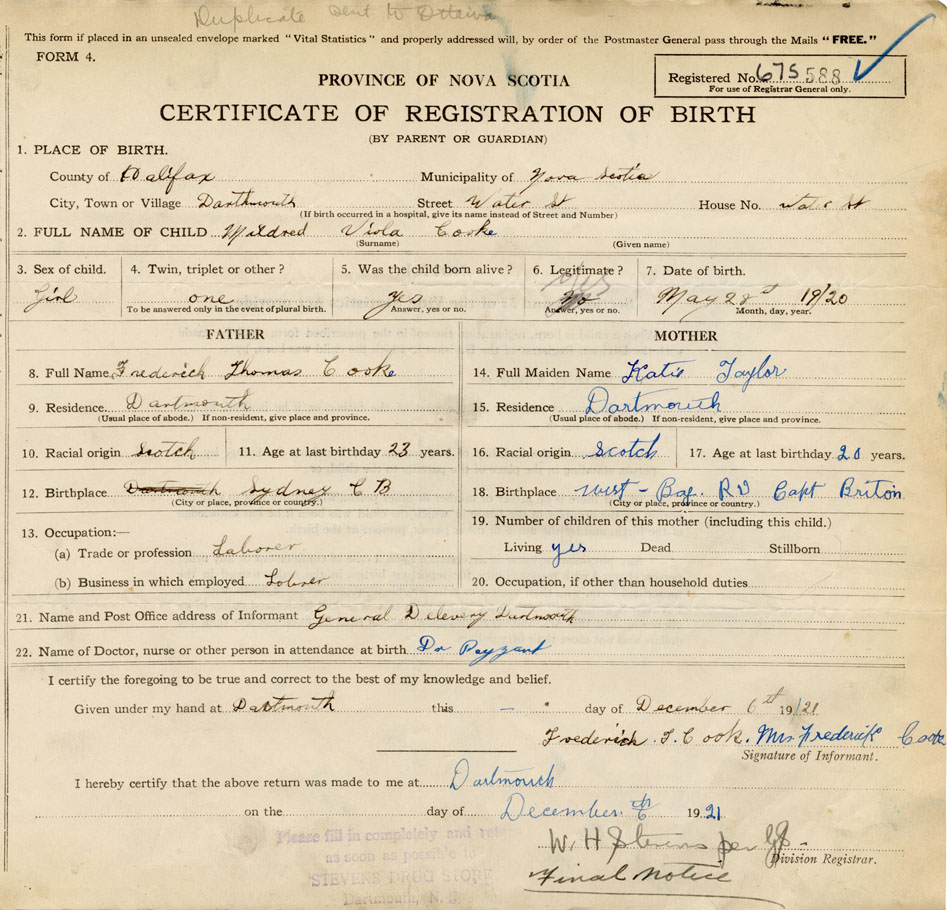 Duplicate sent to Ottawa
This form if placed in an unsealed envelope marked "Vital Statistics" and properly addressed will, by order of the Postmaster General pass through the Mails "FREE."
FORM 4.
PROVINCE OF NOVA SCOTIA
Registered No. 675588
For use of Registrar General only.
CERTIFICATE OF REGISTRATION OF BIRTH
(BY PARENT OR GUARDIAN)
1. PLACE OF BIRTH.
County of Halifax Municipality of Nova Scotia
City, Town or Village Darthmouth Street Water St House No. water St
(If birth occurred in a hospital, give its name instead of Street and Number)
2. FULL NAME OF CHILD Mildred Viola Cooke
(Surname) (Given name)
3. Sex of child. 4. Twin, triplet or other? 5. Was the child born alive? 6. Legitimate? 7. Date of birth.
Girl one yes yes No May 28 19/20
To be answered only in the event of plural birth. Answer, yes or no. Answer, yes or no. Month, day, year.
FATHER MOTHER
8. Full Name Frederick Thomas Cooke 14. Full Maiden Name Katie Taylor
9. Residence Dartmouth 15. Residence Dartmouth
(Usual place of abode.) If non-resident, give place and province. (Usual place of abode.) If non-resident, give place and province.
10. Racial origin Scotch 11. Age at last birthday 23 years. 16. Racial origin Scotch 17. Age at last birthday 20 years.
12. Birthplace Dartmouth Sydney C B 18. Birthplace West - Bay. RD Capt Briton
(City or place, province or country.) (City or place, province or country.)
13. Occupation:— 19. Number of children of this mother (including this child.)
(a) Trade or profession Laborer Living yes Dead Stillborn
(b) Business in which employed Lobrer 20. Occupation, if other than household duties
21. Name and Post Office address of Informant General Delevery Dartmouth
22. Name of Doctor, nurse or other person in attendance at birth Dr Payzant
I certify the foregoing to be true and correct to the best of my knowledge and belief.
Given under my hand at Dartmouth this — day of December 6th 1921
Frederick .T. Cook. Mrs Frederick Cook
Signature of Informant.
I hereby certify that the above return was made to me at Dartmouth
on the day of December 6th 1921
Please fill in completely and
as soon as possible to
STEVENS DRUG STORE
Dartmouth, N. S.
W. H Stevens per
Division Registrar.
Final Notice